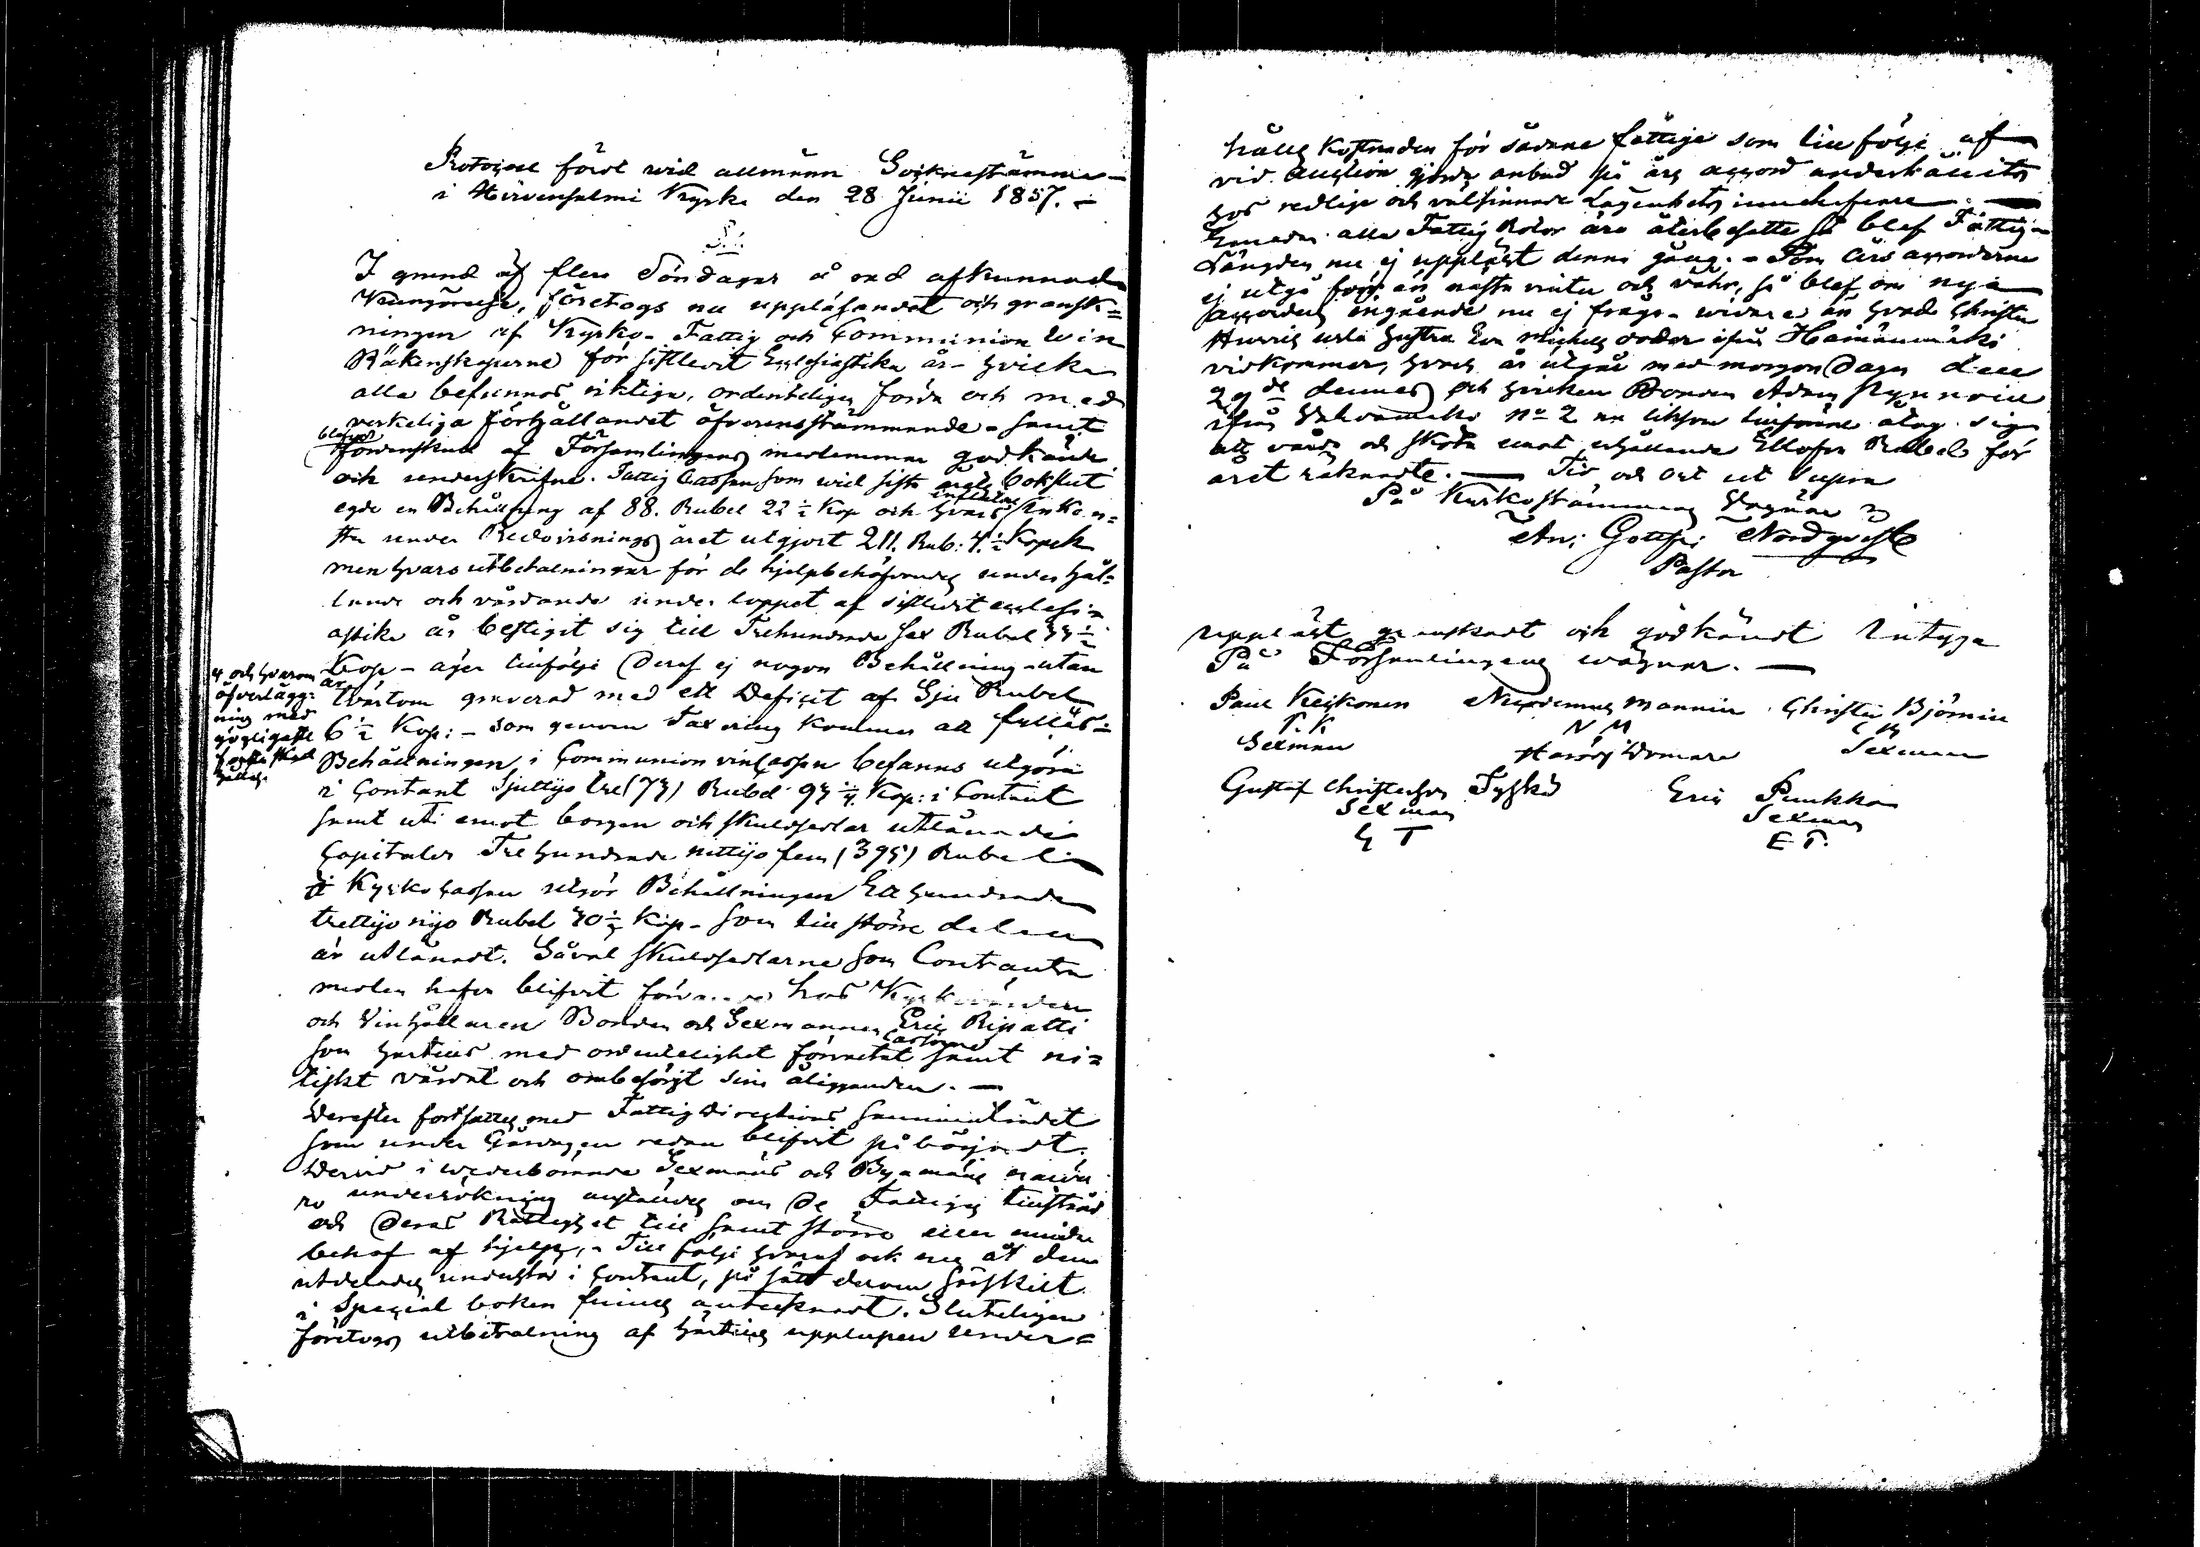 Protocoll fördt wid allmänn Sockne stämma
i Hirvensalmi Kyrka den 28 Junii 1857.
S. D.
I grund af flera Söndagar å rad afkunnad
Kungörelse, företogs nu uppläsandet och gransk=
ningen af Kyrko- Fattig och Communion Vin
Räkenskaperne för sistlevit Ecclesiastika år - hvilka
alla befunnos riktiga, ordenteligen förda och med
verkeliga förhållandet öfverensstämmande - samt
blefvo
af Församlingens medlemmar godkände
och underskrifne. Fattig Cassan som wid sista bokslut
egde en Behållning af 88. Rubel 22 ½ Kop och hvars Inkom=
sta under Redovisnings året utgjort 211. Rub: 4 ½ Kopek
men hvars utbetalningar för de hjelpbehöfvandes underhål=
lande och vårdande under loppet af sistlevit ecclesi=
astika år bestigit sig till Trehundrade sex Rubel 33 ½
Kop - äger tillfölje deraf ej någon Behållning utan
är tvärtom graverad med ett Deficit af Sju Rubel
6 ½ Kop: - som genom Taxering kommer att fyllas=
och hvarom
öfverlägg=
ning med
Behållningen i Communion vincassan befanns utgöra
i Contant Sjuttijo tre (73) Rubel 93 ¼ Kop: i Contant
samt uti emot borgen och skuldsedlar utlånade
Capitaler Tre hundrade nittijo fem (395) Rubel
I Kyrko cassan utgör Behållningen Ett hundrade
trettijo nijo Rubel 40 ½ Kop - som till större delen
är utlånadt. Såväl skuldsedlarne som Contanta
medlen hafva blifvit hos Kyrkvärden
och Vinhållaren Bonden och Sexmannen Eric Ripatti
som härtills med ordentelighet förvaltat samt ni=
tiskt vårdat och ombesörjt sina åligganden. -
Derefter fortsattes med Fattig Directions sammanträdet
som under Gårdagen redan blifvit på börjadt.
Dervid i wederbörande Sexmäns och Byamäns närva
ro undersökning anstäldes om de Fattiges tillstånd
och deras Rättighet till samt större eller mindre
behof af hjelp, - Till följe hvaraf ock åt dem
utdelades understöd i Contant, på sätt derom särskilt
i Special boken finnes antecknadt. Sluteligen
företogs utbetalning af härtills upplupen under=
hålls kostnaden för sådane fattige som till följe af
vid Auction gjorde anbud på års accord underhållits
hos redlige och välsinnade Lägenhets innehafvare. -
Emedan alla Fattig Rotar äro återbesatta så blef Fattig=
Längden nu ej uppläst denna gång. - Som års accorderne
ej utgå förr än nästa vinter och vår, så blef om nya
accorders ingående nu ej fråga - widare än hvad Christer
Eva Michels dotter ifrån Hämäenmäki
vidkommer, hvars år utgår med morgon dagen den
29de dennes och hvilken Bonden Adam
ifrån No 2 nu likson tillförene åtog sig
att vårda och sköta emot erhållande Ellofva Rubel för
året räknadte. - Tid och ort ut supra
På Kyrkostämmans Vägnar
And: Gottfr: Nordqvist
Pastor
uppläst granskadt och godkändt intyga
På Församlingens wägnar. -
Paul Keskonen Nicodemus Mannin Christer Björnin
P. K N M C B
Sexman Härads Domare Sexman
Gustaf Christersson Tyskä Eric Punkka
Sexman Sexman
G T E P.